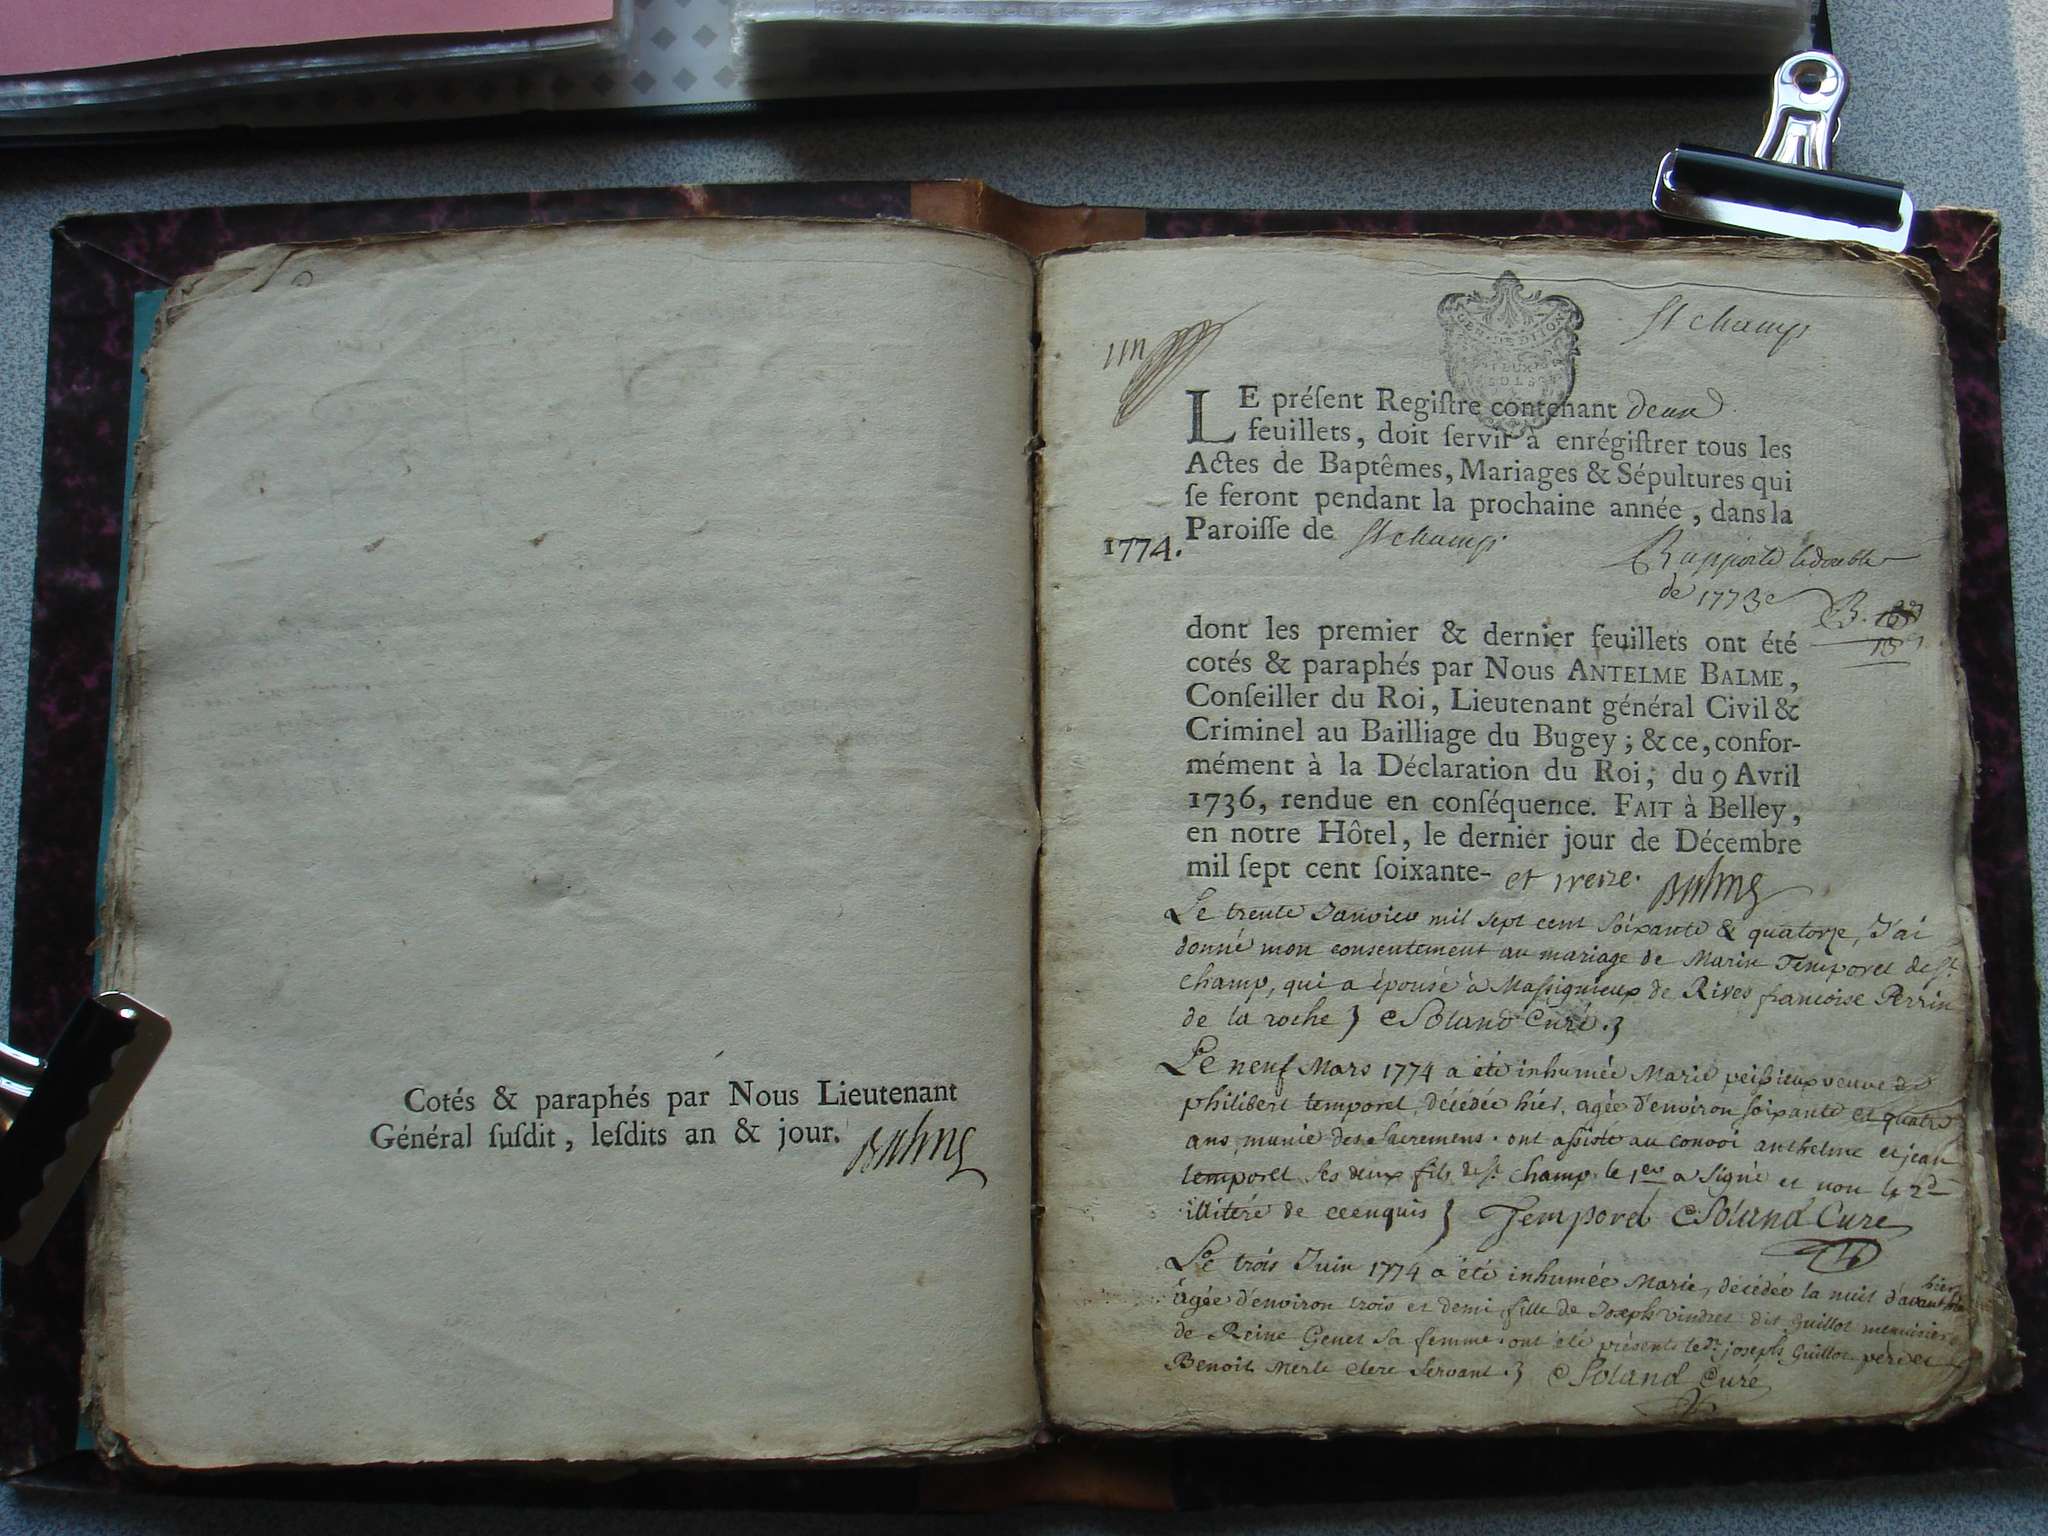 Cotés & paraphés par Nous Lieutenant
Général ſuſdit, leſdits an & jour. Balme
St champ
un
LE préſent Regiſtre contenant deux
feuillets, doit ſervir à enrégiſtrer tous les
Actes de Baptêmes, Mariages & Sépultures qui
ſe feront pendant la prochaine année, dans la
Paroiſſe de St champ
1774.
Rapporté le double
de 1773
dont les premier & dernier feuillets ont été
cotés & paraphés par Nous ANTELME BALME,
Conſeiller du Roi, Lieutenant général Civil &
Criminel au Bailliage du Bugey; & ce, confor-
mément à la Déclaration du Roi, du 9 Avril
1736, rendue en conſéquence. FAIT à Belley,
en notre Hôtel, le dernier jour de Décembre
mil ſept cent ſoixante- et treize. Balme
Le trente Janvier mil sept cent soixante & quatorze, J'ai
donné mon consentement au mariage de Marin Temporel de St
champ, qui a épousé à Massignieux de Rives francoise Perrin
de la roche Soland Curé.
Le neuf Mars 1774 a été inhumée Marie peissieux veuve de
philibert temporel, décédée hier, agée d'environ soixante et quatre
ans, munie des sacremens. ont assisté au convoi anthelme et jean
temporel ses deux fils de St champ. le 1er a signé et non le 2d
illitéré de ce enquis Temporel Soland Curé
Le trois Juin 1774 a été inhumée Marie, décédée la nuit d'avant hier
âgée d'environ trois et demi, fille de Joseph vindret dit Guillot menuisier &
de Reine Genet sa femme. ont été présents led. joseph Guillot pere et
Benoit Merle clerc servant. Soland Curé